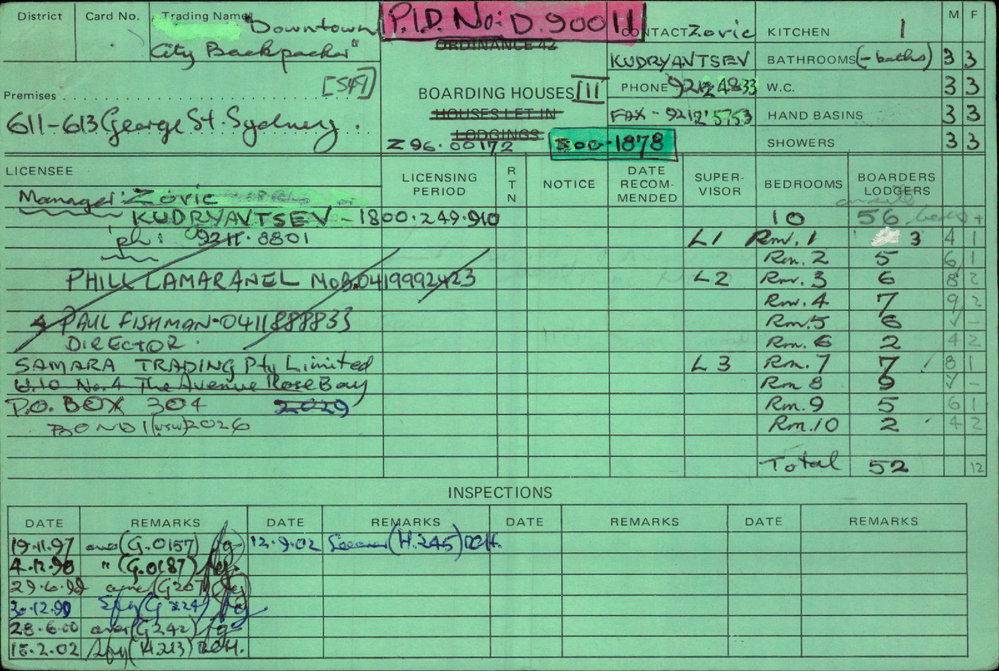 District
Card No.
Trading Name
"Downtown
City Backpacker"
P.I.D. No: D.90011
ORDINANCE 42
[549]
BOARDING HOUSES III
HOUSES LET IN
LODGINGS
Premises
611-613 George St. Sydney.
Z96.00172
1878
CONTACT Zoric
KUDRYAVTSEV
PHONE 9212 4833
FAX - 9212 5753
M F
KITCHEN 1
BATHROOMS (- baths) 3 3
W.C. 3 3
HAND BASINS 3 3
SHOWERS 3 3
LICENSEE
LICENSING PERIOD
RTN
NOTICE
DATE RECOM-MENDED
SUPER-VISOR
BEDROOMS
BOARDERS LODGERS
Manager: Zoric
KUDRYAVTSEV - 1800.249.910
ph: 9211.8801
PHILL LAMARANEL MOB.0419992423
PAUL FISHMAN-0411888833
DIRECTOR.
SAMARA TRADING Pty Limited
U.10 No.4 The Avenue Rose Bay
P.O. BOX 304 2029
BONDI (NSW) 2026
10 56 beds +
L1 Rm. 1 3 4 1
Rm. 2 5 6 1
L2 Rm. 3 6 8 2
Rm. 4 7 9 2
Rm. 5 6 ✓ -
Rm. 6 2 4 2
L3 Rm. 7 7 8 1
Rm 8 9 ✓ -
Rm. 9 5 6 1
Rm. 10 2 4 2
Total 52 12
INSPECTIONS
DATE REMARKS DATE REMARKS DATE REMARKS DATE REMARKS
19.11.97 (G.0157) 12.9.02 (H.245) DCH.
4.12.98 " (G.0187)
29.6.99 (G207)
30.12.99 (G224)
28.6.00 (G242)
15.2.02 (H213) DCH.